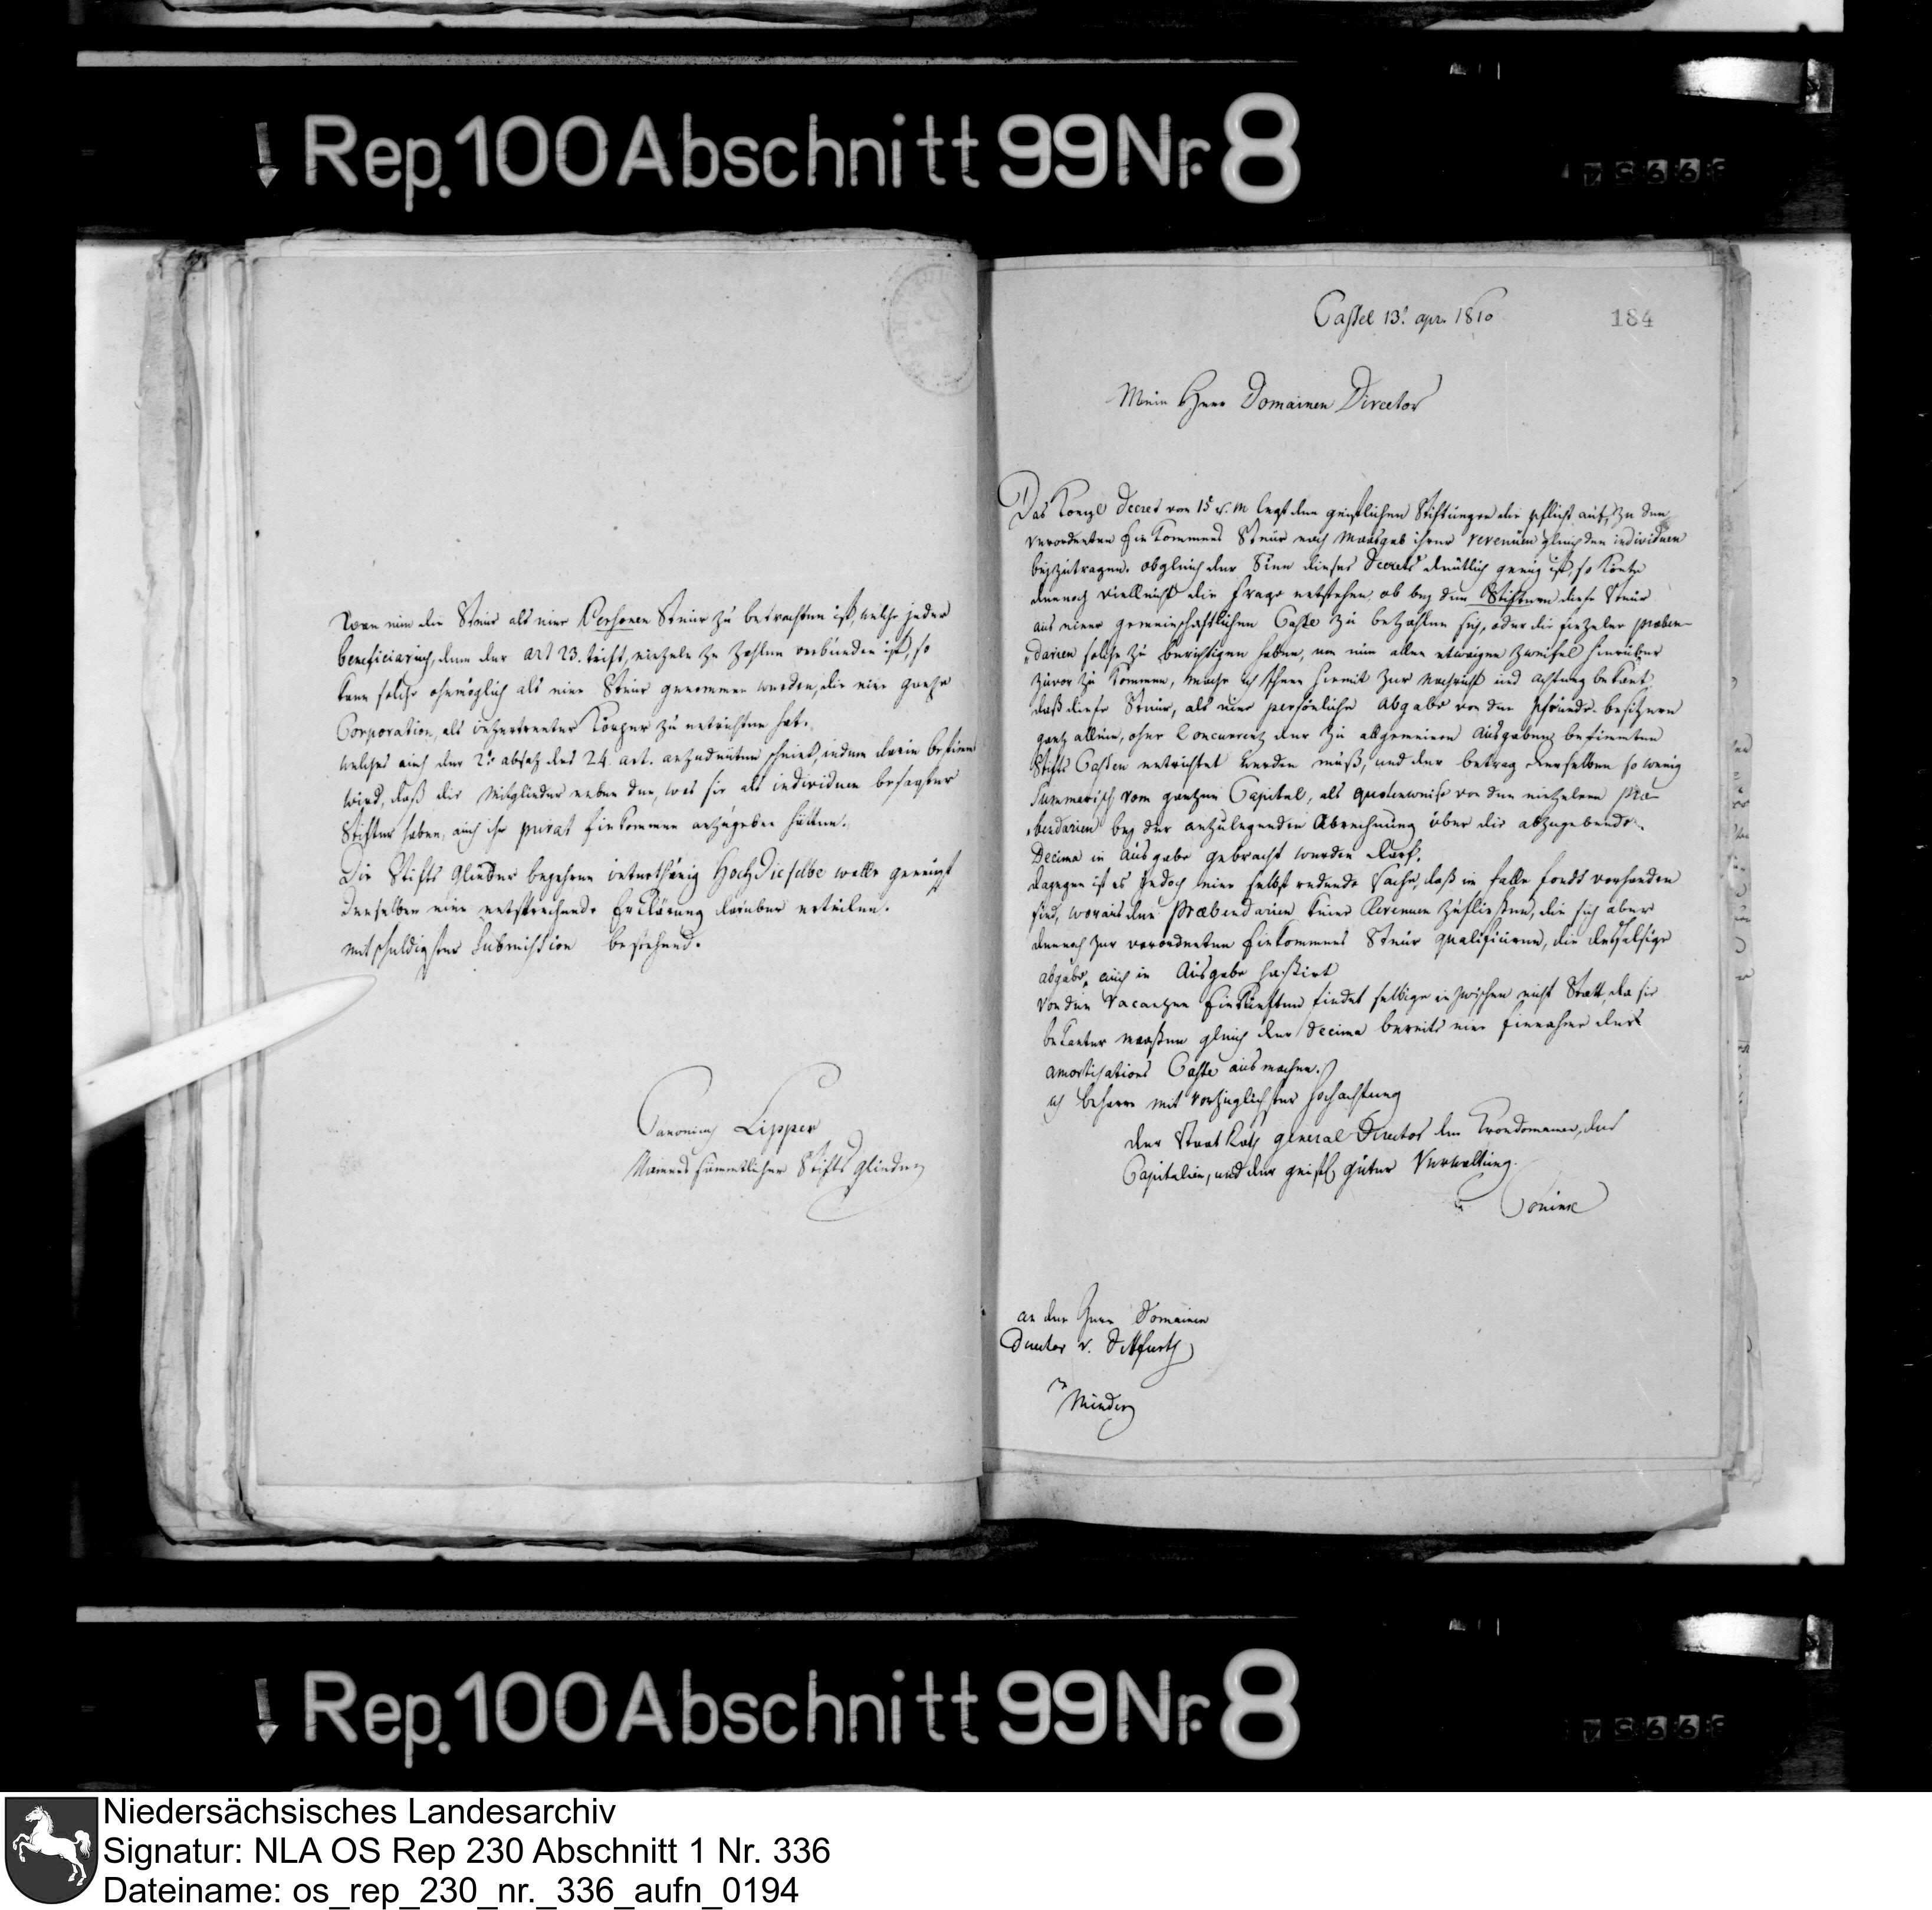 Rep. 100 Abschnitt 99 Nr. 8
Wenn nun die Steur als eine Personen Steur zu betrachten ist, welche jeder
beneficiarius, denn der art 23. trift, einzeln zu zahlen verbunden ist, so
kann solche ohnmöglich als eine Steur genommen werden, die eine ganze
Corporation, als Körper zu entrichten hat.
welches auch der 2te absatz des 24. art. anzudeuten scheint, indem darin bestimt
wird, daß die Mitglieder neben dem, was sie als individuen besagter
Stifter haben, auch ihr privat Einkommen anzugeben hätten.
Die Stifts Glieder begehren unterthänig HochDieselbe wolle geneigt
denselben eine entsprechende Erklärung darüber erteilen.
mit schuldigster Submission bestehend.
Canonicus Lipper
Namens sämmtlicher Stifts Glieder
184
Cassel 13t. apr. 1810
Mein Herr Domainen Director
Das Konigl Decret vom 15 v. M legt den geistlichen Stiftungen die pflicht auf, zu der
verordneten Einkommens Steur nach Maasgab ihrer revenüen gleich den individuen
beyzutragen. obgleich der Sinn dieses Decrets deutlich genug ist, so könte
dennoch vielleicht die Frage entstehen, ob bey den Stiftern diese Steur
aus einer gemeinschaftlichen Casse zu bezahlen sey, oder die einzelne præben-
darien solche zu berichtigen haben, um nun allen etwaigen Zweifel hierüber
zuvor zu kommen, mache ich Ihnen hiermit zur Nachricht und achtung bekant
daß diese Steur, als eine persönliche Abgabe von den Pfründe besitzern
gantz allein, ohne Concurrenz der zu allgemeinen Ausgaben bestimmten
Stifts Cassen entrichtet werden muß, und der betrag derselben so wenig
Summarisch vom gantzen Capitel, als quotenweise von den einzelnen Præ-
bendarien bey der anzulegenden Abrechnung über die abzugebende
Decima in Ausgabe gebracht werden darf.
dagegen ist es jedoch eine selbst redende Sache, daß im falle fonds vorhanden
sind, woraus den Præbendarien keine Revenuen zufließen, die sich aber
dennoch zur verordneten Einkommens Steur qualificiren, die desfalsige
abgabe, auch in Ausgabe passirt
Von den vacanzen Einkünften findet selbige inzwischen nicht Statt, da sie
bekanter maaßen gleich der Decima bereits eine Einnahme der
amortisations Casse ausmachen.
ich beharre mit vorzüglichster Hochachtung
der Staat Rath general Director der Krondomainen, der
Capitalien, und der geistl güter Verwaltung.
an den Herrn Domainen
Director v. Dittfurth
Minden
Rep. 100 Abschnitt 99 Nr. 8
Niedersächsisches Landesarchiv
Signatur: NLA OS Rep 230 Abschnitt 1 Nr. 336
Dateiname: os_rep_230_nr._336_aufn_0194